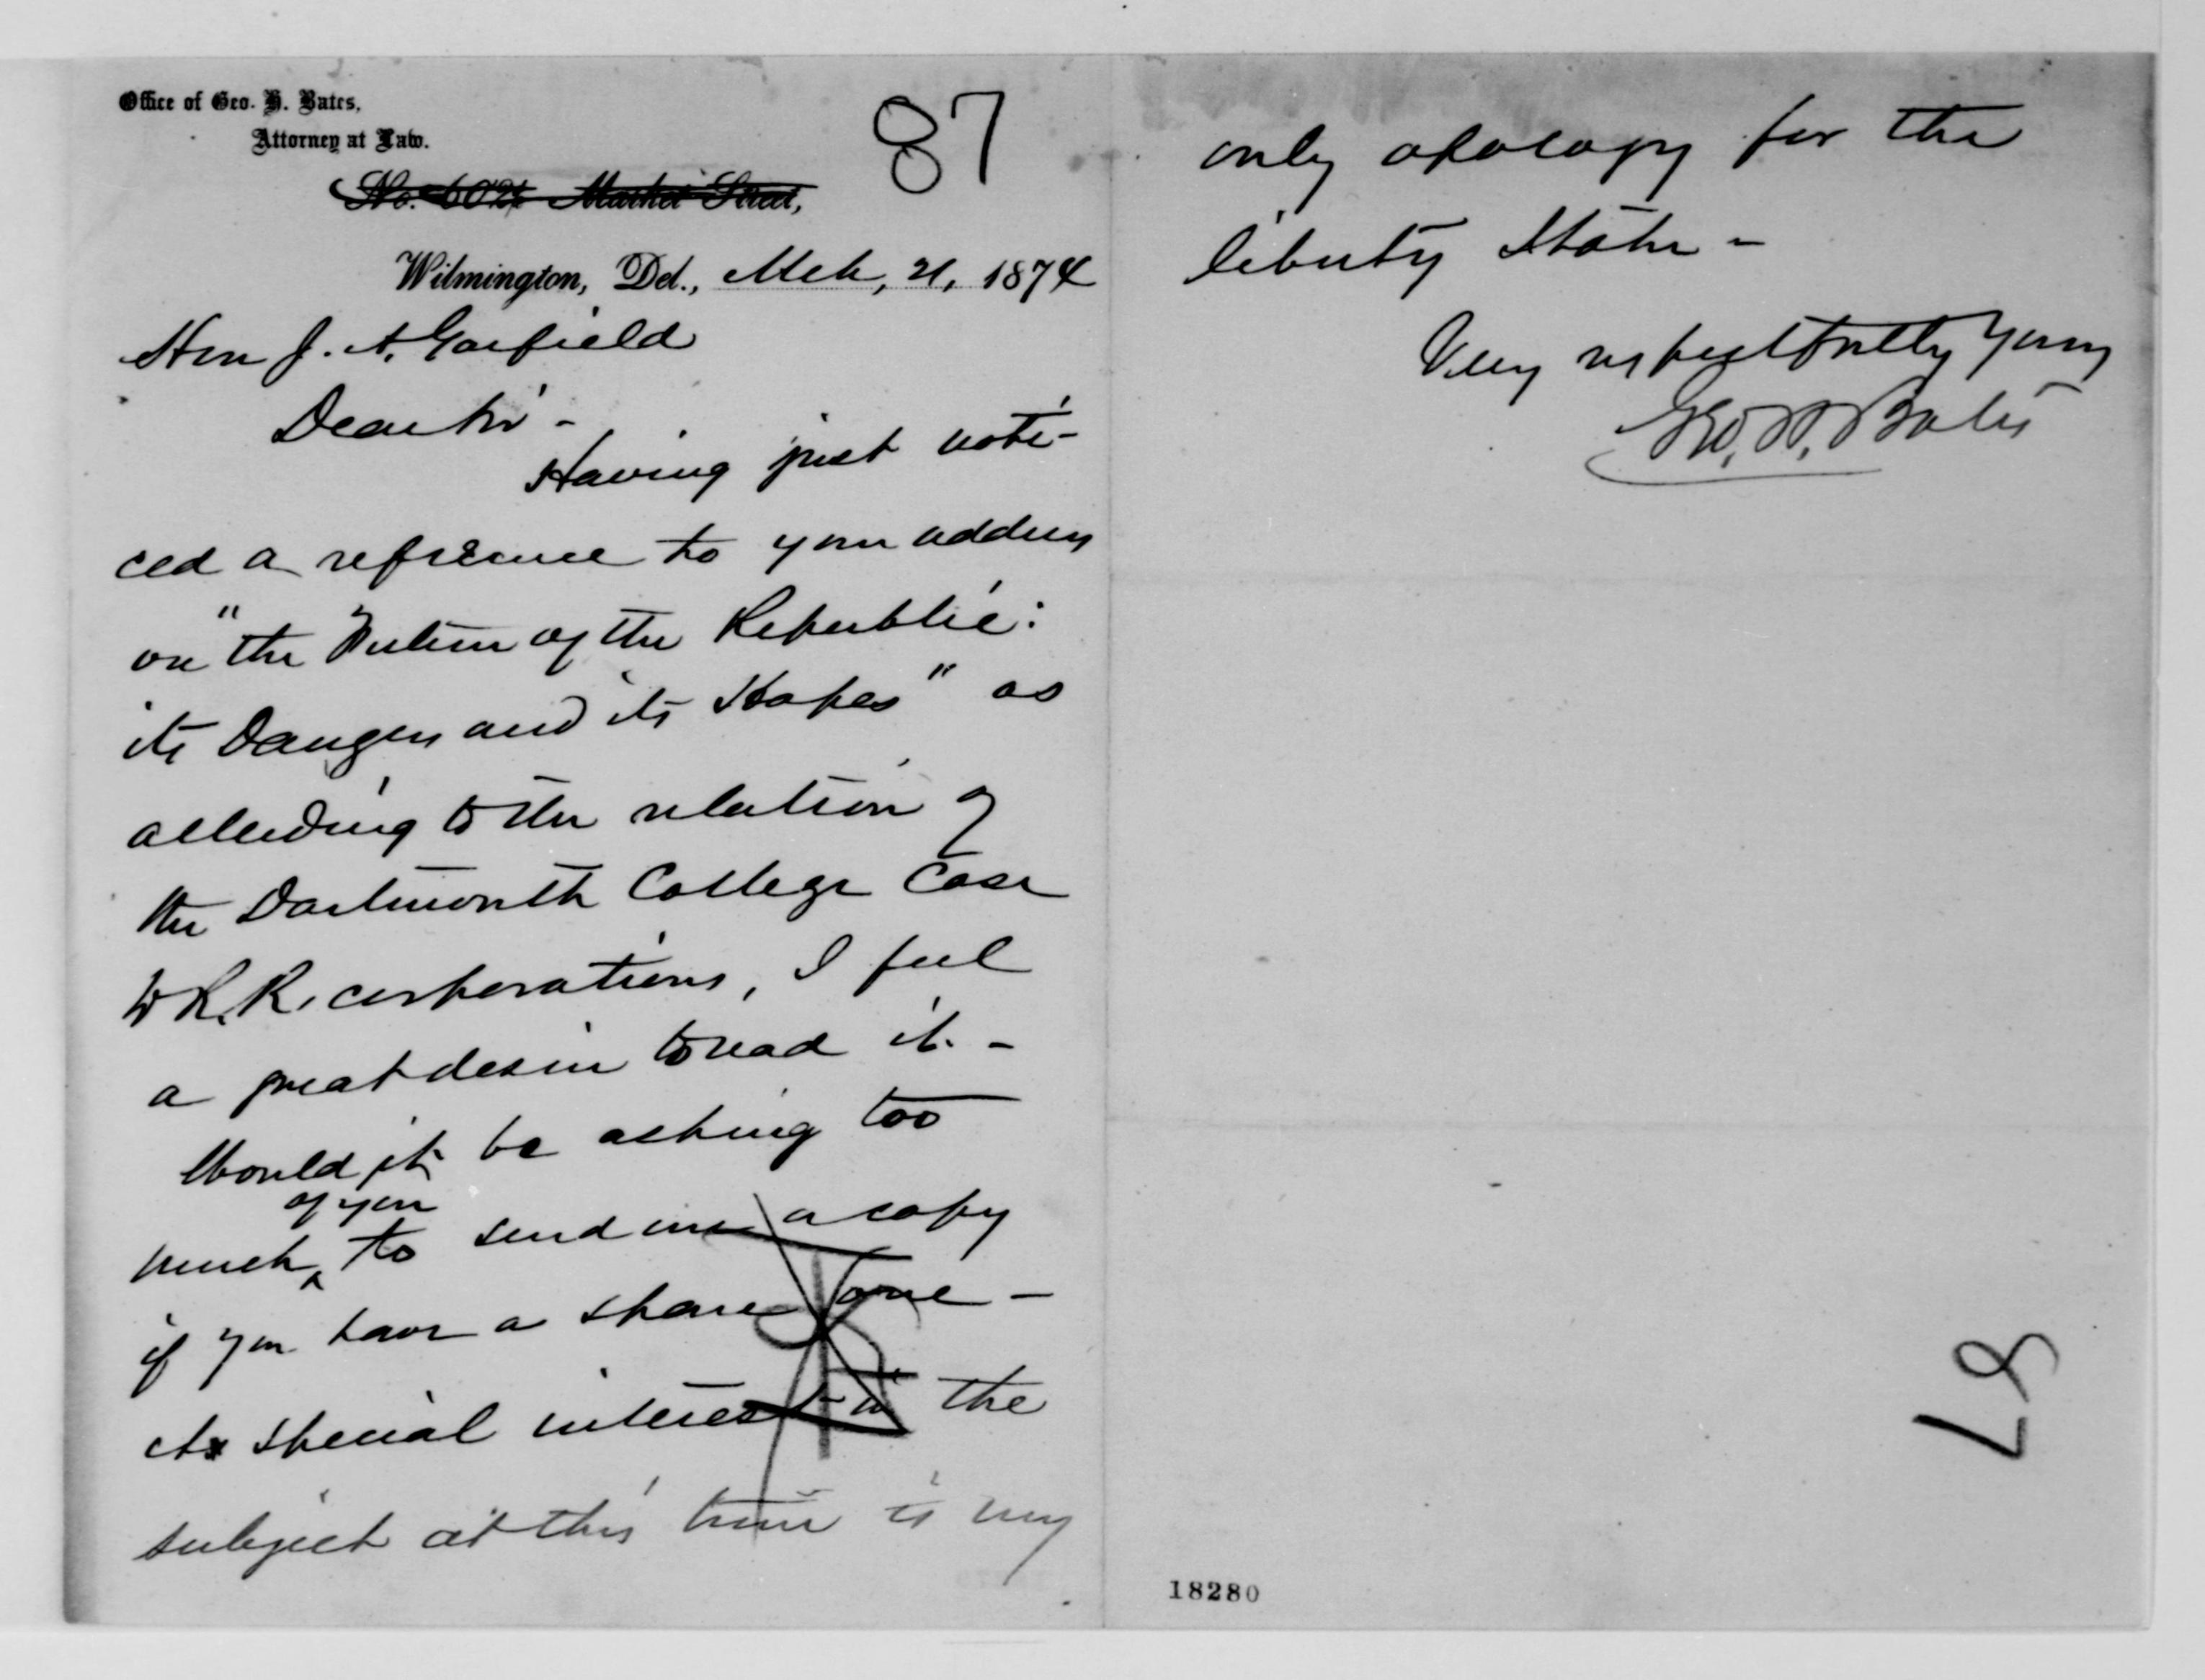 Office of Geo. H. Bates,
Attorney at Law.
No. 602½ Market Street,
87
Wilmington, Del., Mch, 21, 1874
Hon J. A. Garfield
Dear Sir -
Having just noti-
ced a reference to your address
on "the Future of the Republic:
its Dangers and its Hopes" as
alluding to the relation of
the Dartmouth College Case
to R.R. corporations, I feel
a great desire to read it. -
Would it be asking too
much of you to send me a copy
if you have a spare one -
special interest in the
subject at this time is my
only apology for the
liberty I take -
Very respectfully Yours
Geo. H. Bates
87
18280